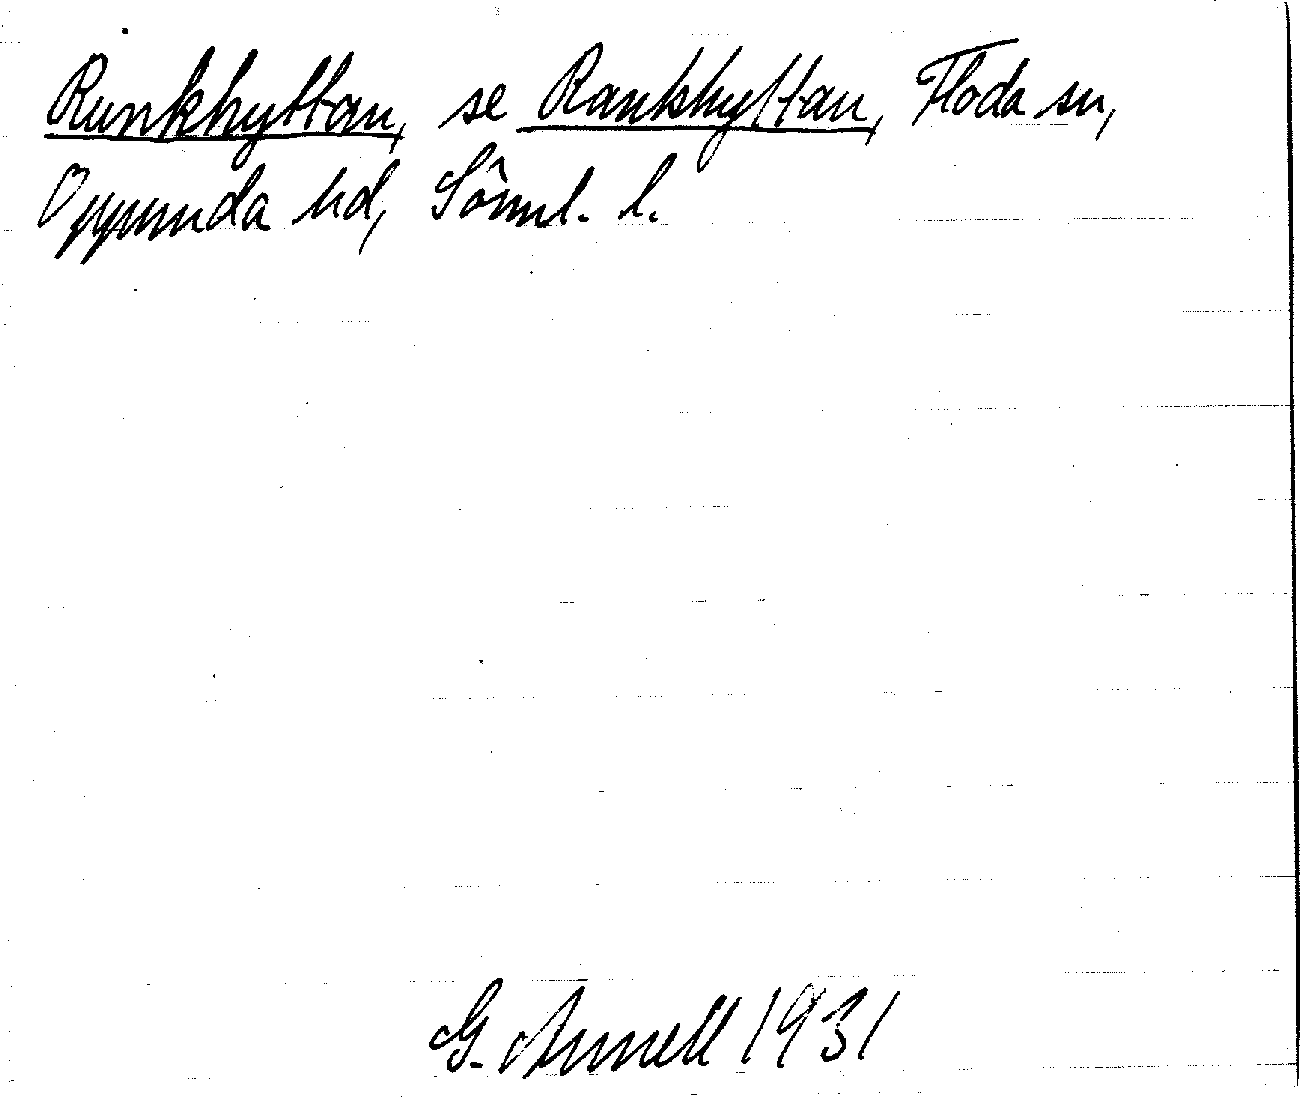 Runkhyttan, se Rankhyttan, Floda sn,
Oppunda hd, Sörml. l.
G. Annell 1931